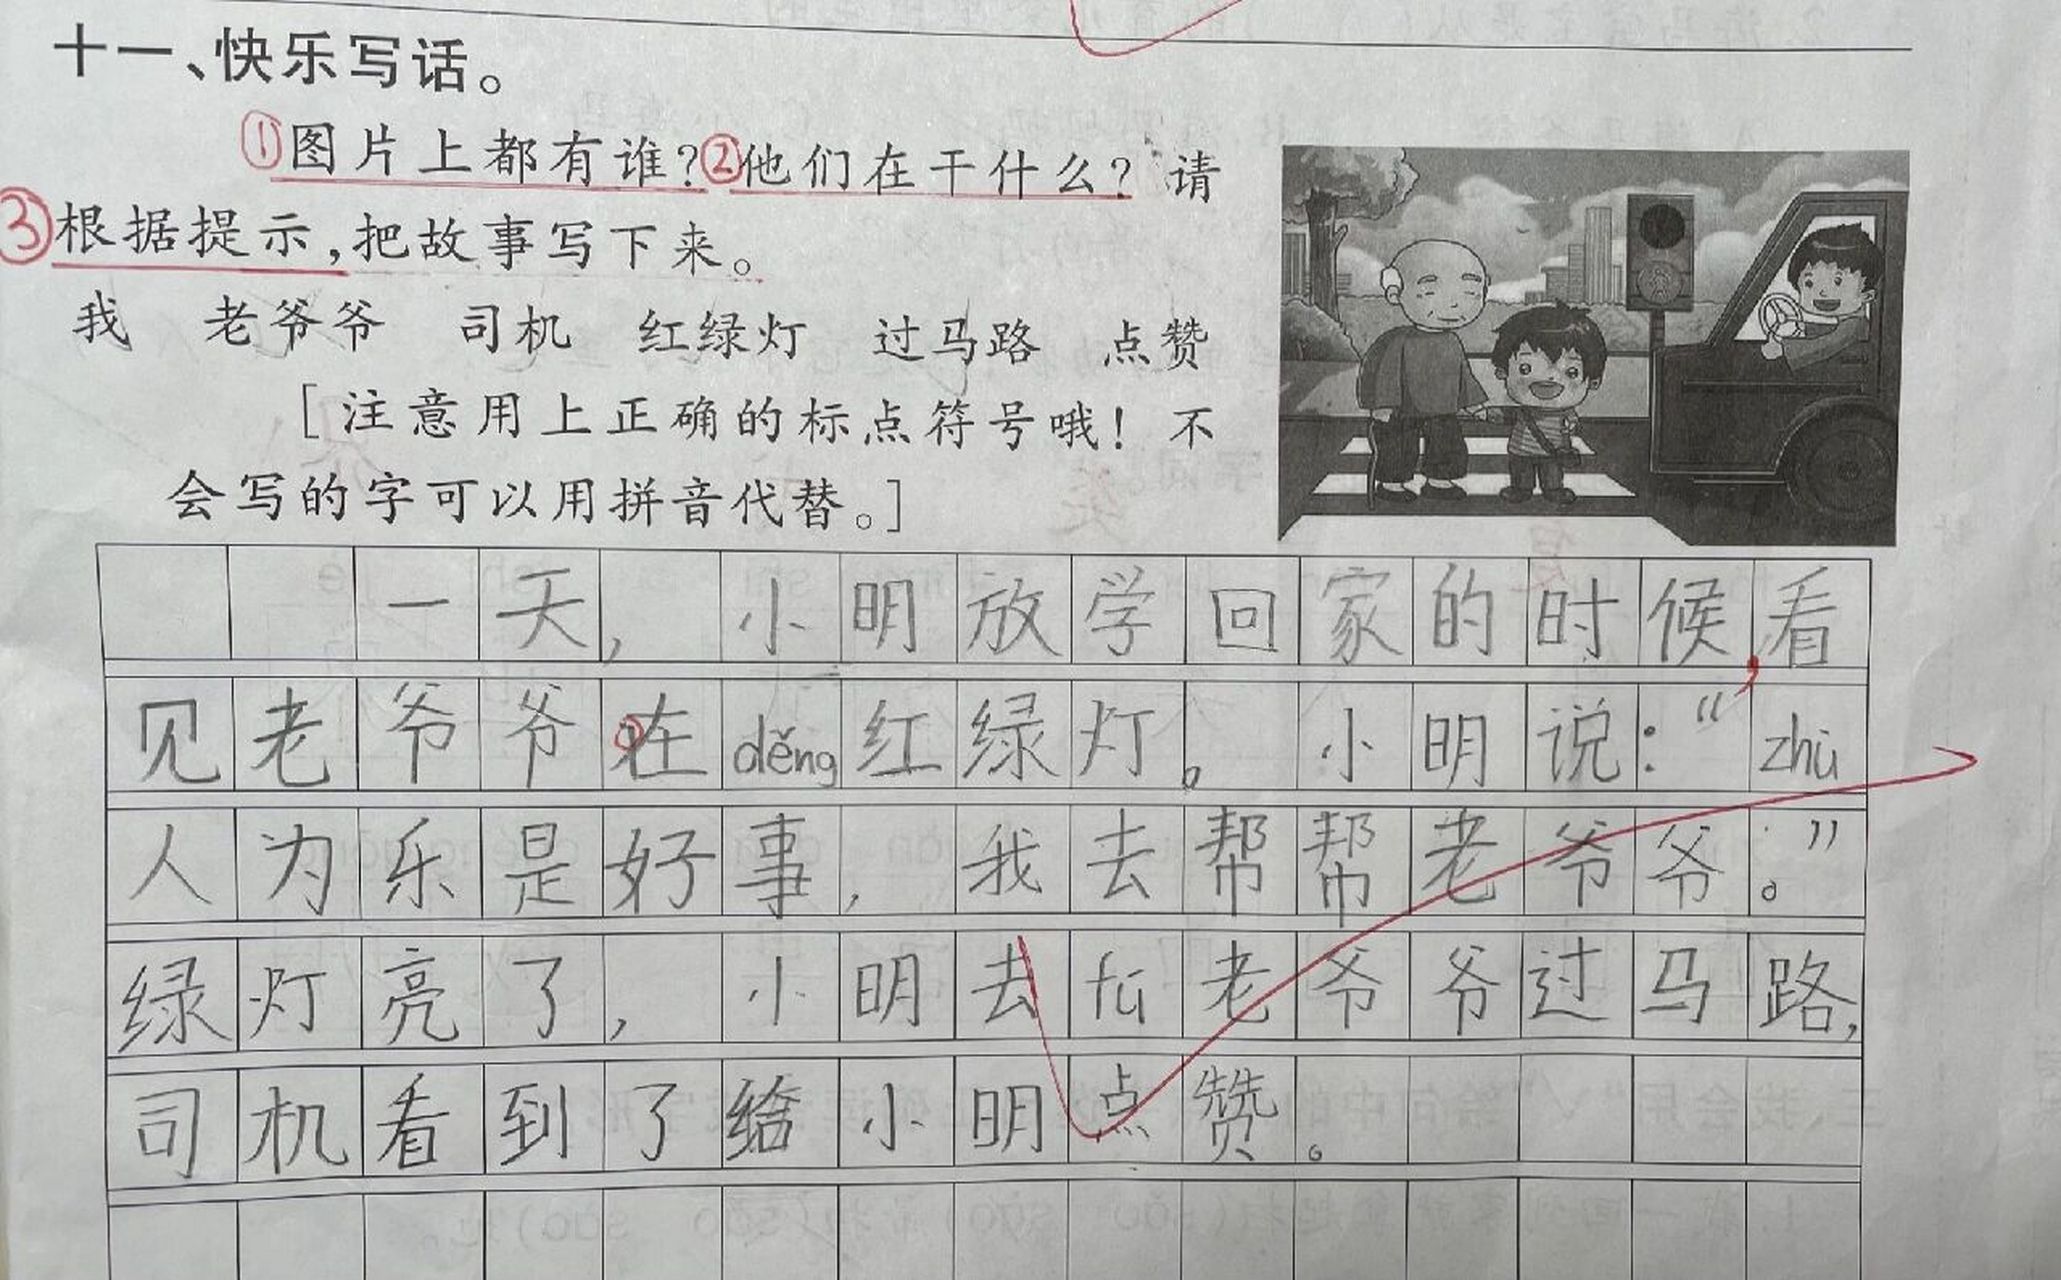 十一、快乐写话。
①图片上都有谁?②他们在干什么?请
③根据提示,把故事写下来。
我 老爷爷 司机 红绿灯 过马路 点赞
[注意用上正确的标点符号哦!不
会写的字可以用拼音代替。]
一天,小明放学回家的时候,看
见老爷爷在děng红绿灯。小明说:“zhù
人为乐是好事,我去帮帮老爷爷。”
绿灯亮了,小明去fú老爷爷过马路,
司机看到了给小明点赞。